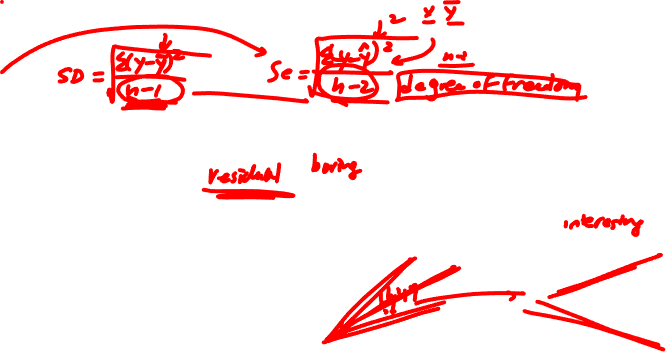 x ȳ
SD = √(Σ(y-ȳ)² / n-1) Se = √(Σ(y-ŷ)² / n-2) degree of freedom
residual boring
interesting